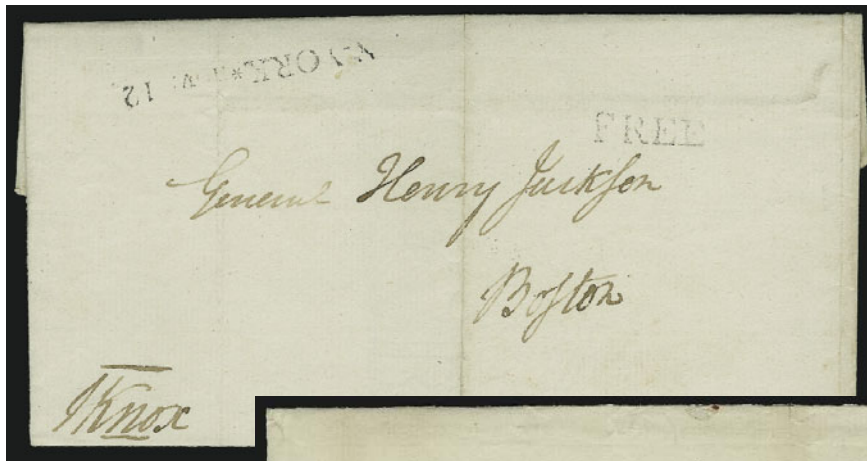 N-YORK * 12
FREE
General Henry Jackſon
Boſton
HKnox